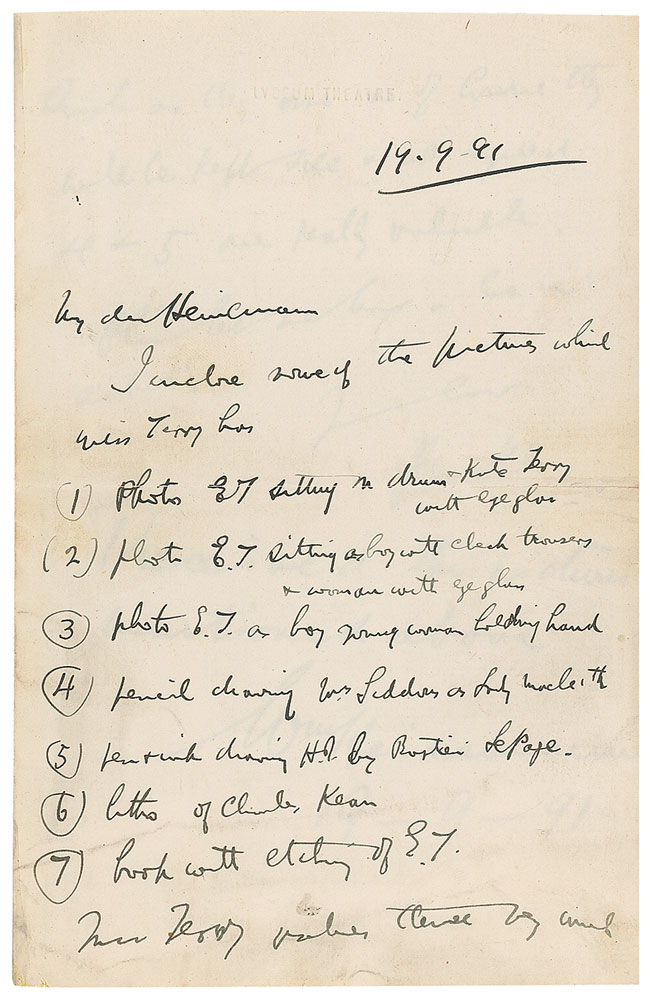 LYCEUM THEATRE.
19-9-91
My dear Heinemann
I enclose some of the pictures which
Miss Terry has
(1) Photo ET sitting on drum & Kate Terry
with eyeglass
(2) photo E.T. sitting as boy with check trousers
& woman with eyeglass
(3) photo E.T. as boy young woman holding hand
(4) pencil drawing Mrs Siddons as Lady Macbeth
(5) pen & ink drawing H.I. by Bastien LePage.
(6) litho of Charles Kean
(7) book with etching of E.T.
Miss Terry values these very much